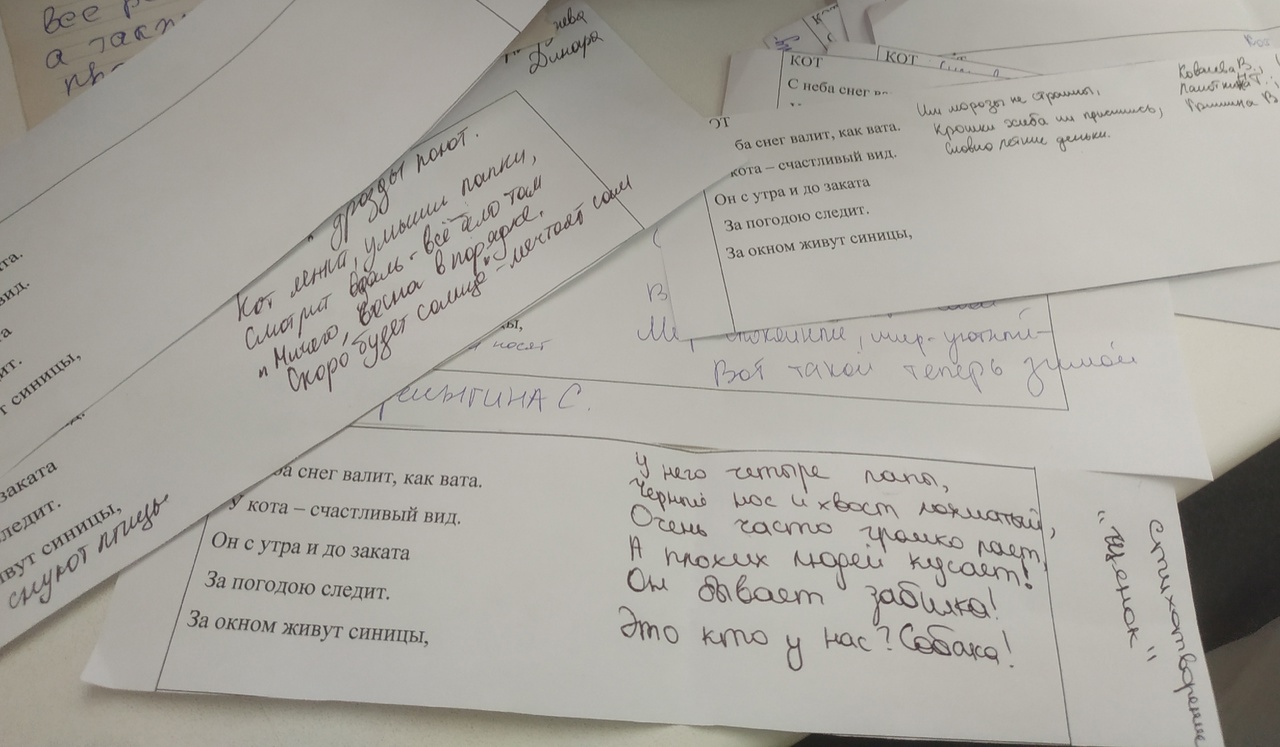 все
а такж
КОТ
КОТ
С неба снег
Динара
дрозды поют.
Кот ленив, умывши лапки,
Смотрит вдаль - всё ёло там
"Ничего, весна в порядке.
Скоро будет солнце" - мечтает сам
ба снег валит, как вата.
кота – счастливый вид.
Он с утра и до заката
За погодою следит.
За окном живут синицы,
Им морозы не страшны,
Крошки хлеба им приснились,
Словно летние деньки.
Ковалева В.,
вид.
синицы,
заката
следит.
живут синицы,
снуют птицы
носят
спокойный, мир-уютный-
Вот такой теперь зимой
С.
ба снег валит, как вата.
У кота – счастливый вид.
Он с утра и до заката
За погодою следит.
За окном живут синицы,
У него четыре лапы,
Черный нос и хвост лохматый,
Очень часто громко лает,
А плохих людей кусает!
Он бывает забияка!
Это кто у нас? Собака!
Стихотворение
"Щенок"